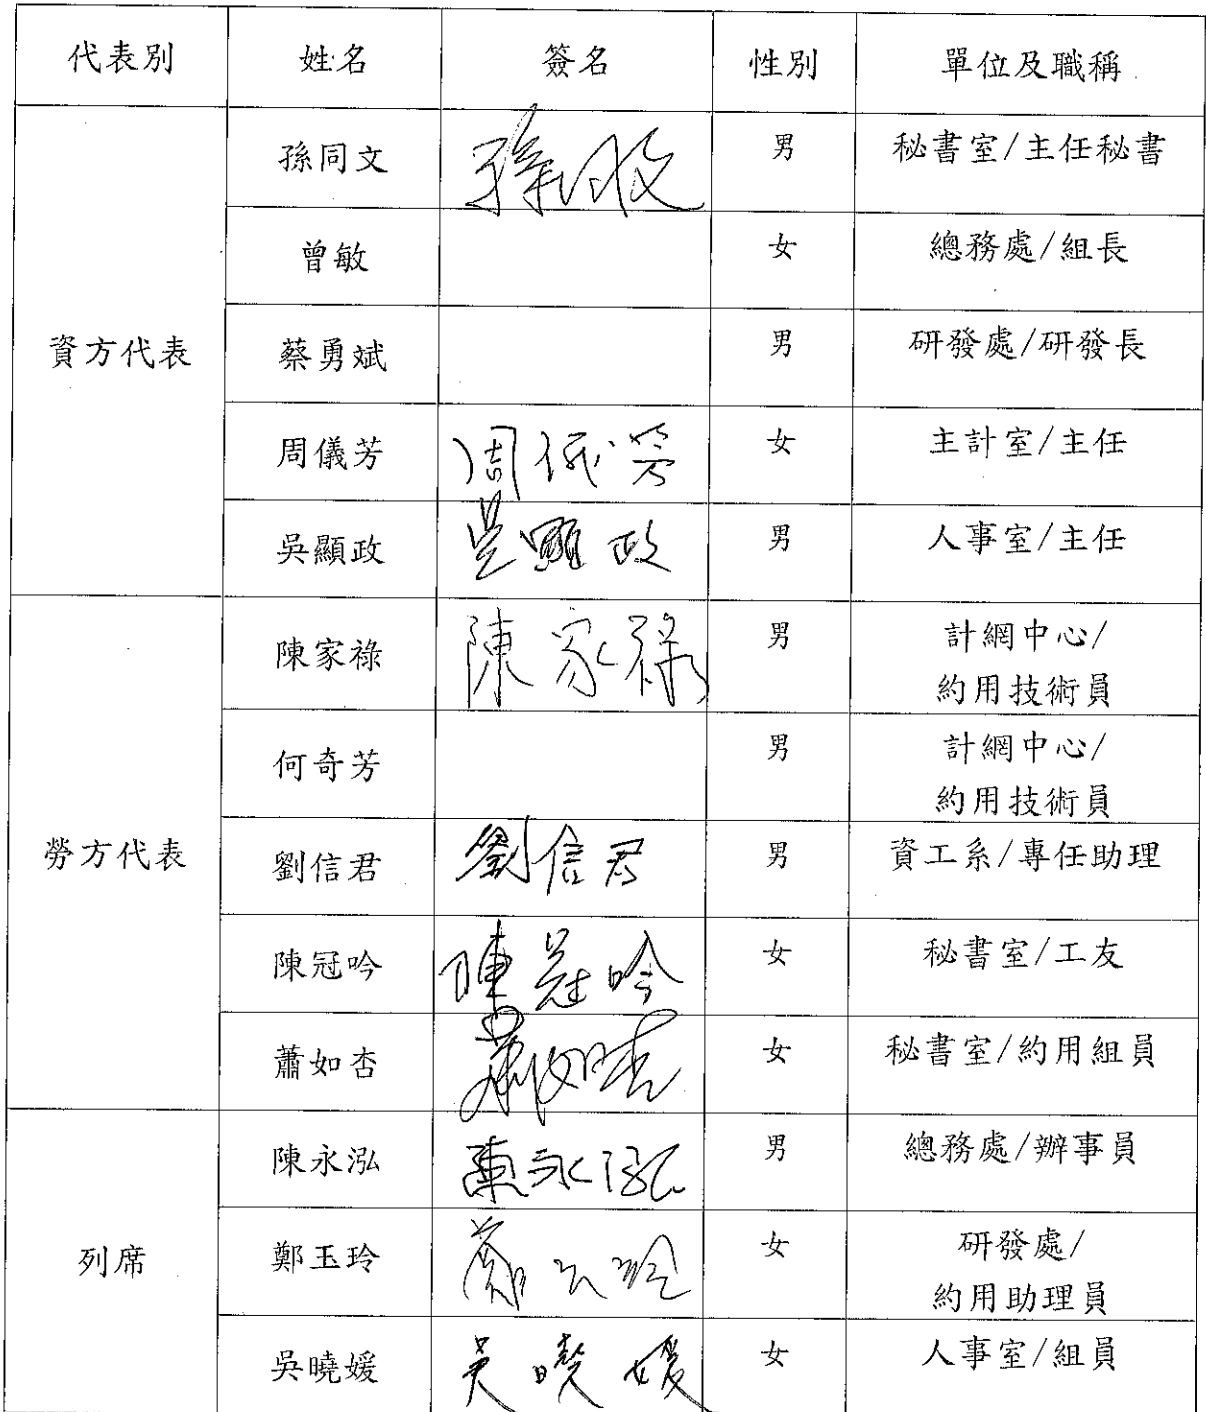 代表別 姓名 簽名 性別 單位及職稱
孫同文 孫同文 男 秘書室/主任秘書
曾敏 女 總務處/組長
資方代表 蔡勇斌 男 研發處/研發長
周儀芳 周儀芳 女 主計室/主任
吳顯政 吳顯政 男 人事室/主任
陳家祿 陳家祿 男 計網中心/
約用技術員
何奇芳 男 計網中心/
約用技術員
勞方代表 劉信君 劉信君 男 資工系/專任助理
陳冠吟 陳冠吟 女 秘書室/工友
蕭如杏 蕭如杏 女 秘書室/約用組員
陳永泓 陳永泓 男 總務處/辦事員
列席 鄭玉玲 鄭玉玲 女 研發處/
約用助理員
吳曉媛 吳曉媛 女 人事室/組員